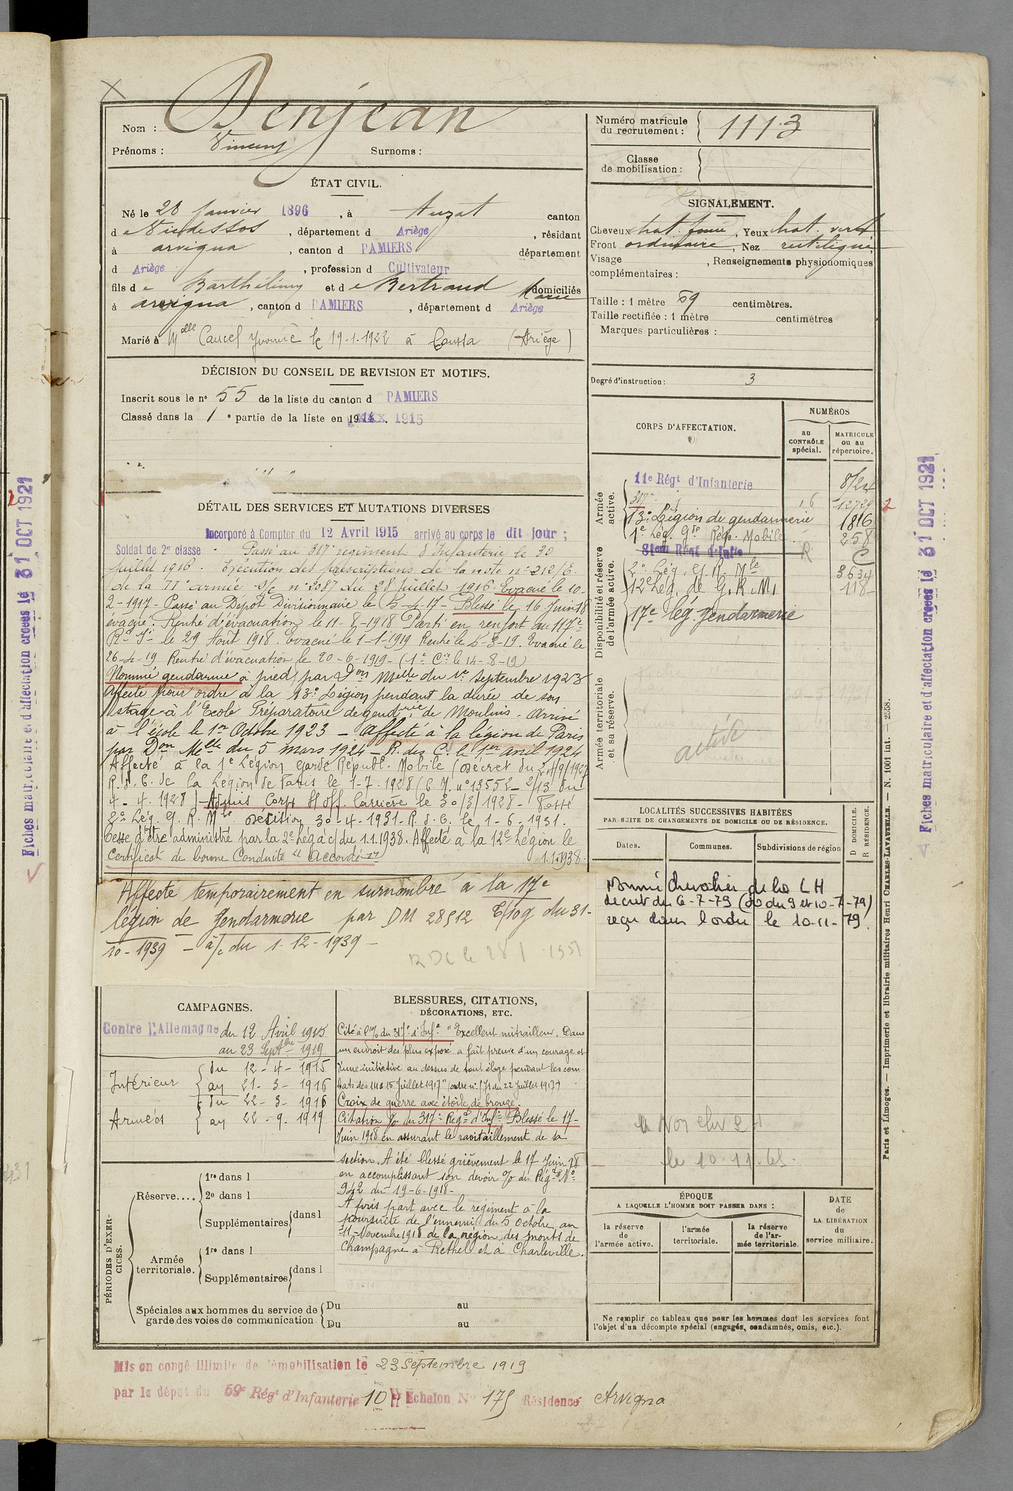 Nom : Denjean
Prénoms : Vincent Surnoms :
Numéro matricule du recrutement : 1113
Classe de mobilisation :
ÉTAT CIVIL.
Né le 28 Janvier 1896, à Auzat canton
de Vicdessos, département d Ariège, résidant
à arvigna, canton d PAMIERS département
d Ariège, profession d Cultivateur
fils de Barthélemy et de Bertrand Marie domiciliés
à arvigna, canton d PAMIERS, département d Ariège
Marié à Melle Cancel Yvonne le 19.1.1922 à Coussa (Ariège)
SIGNALEMENT.
Cheveux chat. foncé, Yeux chat. verdt
Front ordinaire, Nez rectiligne
Visage , Renseignements physionomiques
complémentaires :
Taille : 1 mètre 69 centimètres.
Taille rectifiée : 1 mètre centimètres
Marques particulières :
Degré d'instruction : 3
DÉCISION DU CONSEIL DE REVISION ET MOTIFS.
Inscrit sous le n° 55 de la liste du canton d PAMIERS
Classé dans la 1e partie de la liste en 1915
DÉTAIL DES SERVICES ET MUTATIONS DIVERSES
Incorporé à Compter du 12 Avril 1915 arrivé au corps le dit jour ;
Soldat de 2e classe - Passé au 317e régiment d'Infanterie le 30
juillet 1916 - Exécution des prescriptions de la note n° 212/6
de la VIe armée du 28 juillet 1916 Evacué le 10-
2-1917 - Passé au Dépot Divisionnaire le 5-4-17 - Blessé le 16 Juin 18
évacué. Rentré d'évacuation le 11-8-1918 Parti en renfort au 117e
le 29 Août 1918 Evacué le 1-1-1919 Rentré le Evacué le
26-4-19 Rentré d'évacuation le 20-6-1919 - (1e Cie le 14-8-19)
Nommé gendarme à pied par Don Melle du 1er septembre 1923
Affecté pour ordre à la 13e Légion pendant la durée de son
stage à l'Ecole Préparatoire de gendrie de Moulins - Arrivé
à l'école le 1er Octobre 1923 - Affecté à la légion de Paris
par Don Melle du 5 mars 1924 - R. des C. le 1er avril 1924
Affecté à la 1e Légion Garde Républ. Mobile (décret du
R. d. C. de la Légion de Paris le 1-7-1928 (C. M. n° 13552 - 2/13 du
4-4-1928) - Admis Corps S/Off. Carrière le 30/3/1928 - Passé
2e Lég. G. R. Mle décision 30-4-1931 - R. d. C. le 1-6-1931.
Cesse d'être administré par la 2e Lég. à c/ du 1.1.1938. Affecté à la 12e Légion le
1.1.1938.
Certificat de bonne Conduite "Accordé"
Affecté temporairement en surnombre à la 17e
légion de Gendarmerie par DM 28512 E/10g du 31-
10-1939 - à/c du 1-12-1939 -
CORPS D'AFFECTATION.
NUMÉROS
au contrôle spécial.
MATRICULE ou au répertoire.
Armée active.
11e Régt d'Infanterie 8124
317e
13e Légion de gendarmerie 1816
1e Lég. Gde Rép. Mobile 258
Disponibilité et réserve de l'armée active.
2e Lég. G. R. Mle 3634
12e Lég. de G. R. M. 118
17e Lég. Gendarmerie
Armée territoriale et sa réserve.
active
LOCALITÉS SUCCESSIVES HABITÉES
PAR SUITE DE CHANGEMENTS DE DOMICILE OU DE RÉSIDENCE.
Dates. Communes. Subdivisions de région
D DOMICILE. R RÉSIDENCE.
Nommé Chevalier de la LH
décret du 6-7-79 (JO du 9 et 10-7-79)
reçu dans l'ordre le 10-11-79.
le 10.11.
CAMPAGNES.
Contre l'Allemagne du 12 Avril 1915
au 23 Septbre 1919
Intérieur { du 12-4-1915
au 21-3-1916
Armées { du 22-3-1916
au 22-9-1919
BLESSURES, CITATIONS,
DÉCORATIONS, ETC.
Cité à l'O/ du 317e d'Infie "Excellent mitrailleur. Dans
un endroit des plus exposé a fait preuve d'un courage et
d'une initiative au dessus de tout éloge pendant les com
bats des 14 et 15 juillet 1917" (ordre n° 171 du 22 juillet 1917)
Croix de guerre avec étoile de bronze.
Citation O/ du 317e Régt d'Infie Blessé le 17-
Juin 1918 en assurant le ravitaillement de sa
section. A été blessé grièvement le 17 Juin 18
en accomplissant son devoir O/ du Régt N°
942 du 19-6-1918 -
A pris part avec le régiment à la
poursuite de l'ennemi du 5 Octobre au
11 Novembre 1918 de la région des monts de
Champagne à Rethel et à Charleville.
PÉRIODES D'EXERCICES.
Réserve.... 1re dans l
2e dans l
Supplémentaires dans l
Armée territoriale. 1re dans l
Supplémentaires dans l
Spéciales aux hommes du service de garde des voies de communication { Du au
Du au
ÉPOQUE
A LAQUELLE L'HOMME DOIT PASSER DANS :
la réserve de l'armée active.
l'armée territoriale.
la réserve de l'armée territoriale.
DATE de LA LIBÉRATION du service militaire.
Ne remplir ce tableau que pour les hommes dont les services font
l'objet d'un décompte spécial (engagés, condamnés, omis, etc.).
Mis en congé illimité de démobilisation le 23 Septembre 1919
par le dépôt du 59e Régt d'Infanterie 10e Echelon N° 175 Résidence Arvigna
Fiches matriculaire et d'affectation créées le 31 OCT 1921
Fiches matriculaire et d'affectation créées le 31 OCT 1921
Paris et Limoges. — Imprimerie et librairie militaires Henri CHARLES-LAVAUZELLE. — N. 1001 int. — 2558.